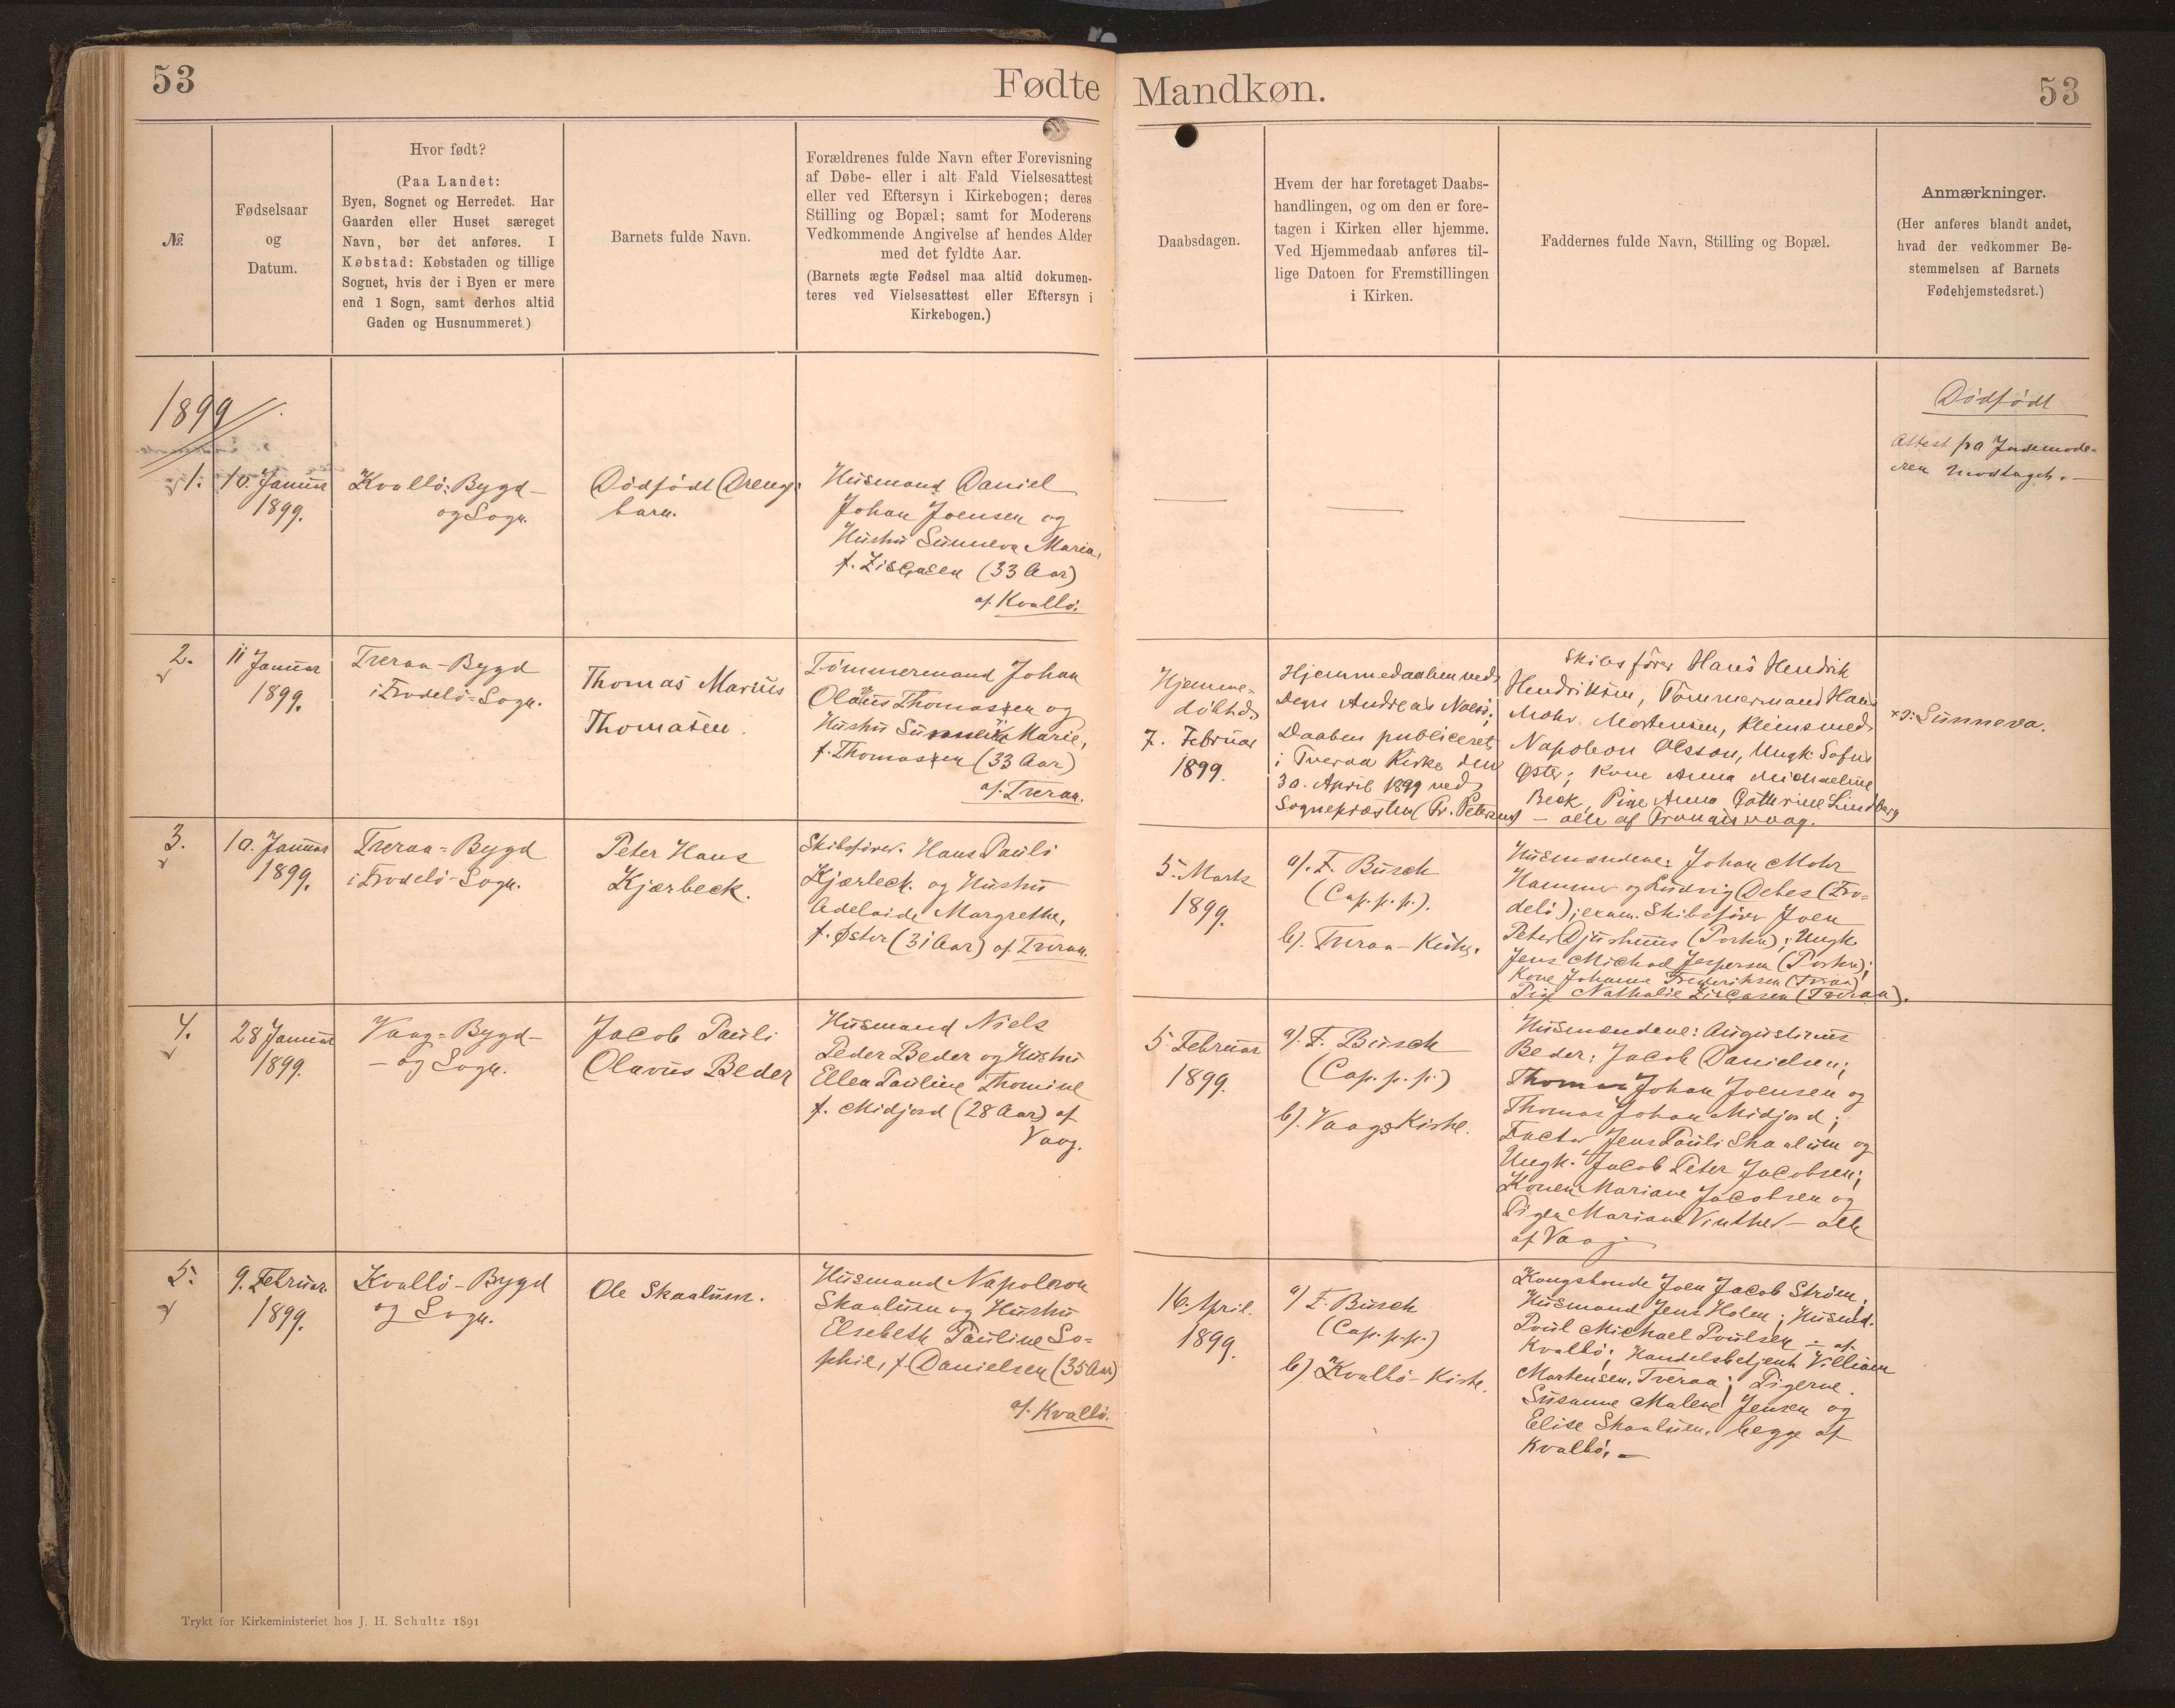 53
Fødte
Mandkøn.
53
№
Fødselsaar
og
Datum.
Hvor født?
(Paa Landet:
Byen, Sognet og Herredet. Har
Gaarden eller Huset særeget
Navn, bør det anføres. I
Købstad: Købstaden og tillige
Sognet, hvis der i Byen er mere
end 1 Sogn, samt derhos altid
Gaden og Husnummeret.)
Barnets fulde Navn.
Forældrenes fulde Navn efter Forevisning
af Døbe- eller i alt Fald Vielsesattest
eller ved Eftersyn i Kirkebogen; deres
Stilling og Bopæl; samt for Moderens
Vedkommende Angivelse af hendes Alder
med det fyldte Aar.
(Barnets ægte Fødsel maa altid dokumen-
teres ved Vielsesattest eller Eftersyn i
Kirkebogen.)
Daabsdagen.
Hvem der har foretaget Daabs-
handlingen, og om den er fore-
tagen i Kirken eller hjemme.
Ved Hjemmedaab anføres til-
lige Datoen for Fremstillingen
i Kirken.
Faddernes fulde Navn, Stilling og Bopæl.
Anmærkninger.
(Her anføres blandt andet,
hvad der vedkommer Be-
stemmelsen af Barnets
Fødehjemstedsret.)
1899
1.
10. Januar
1899.
Kvalbø-Bygd-
og Sogn.
Dødfødt Drenge-
barn.
Husmand Daniel
Johan Joensen og
Hustru Sunneva Maria,
f. Ziscasen (33 Aar)
af Kvalbø.
Dødfødt
Attest fra Jordemode-
ren modtaget. —
2.
11 Januar
1899.
Tveraa-Bygd
i Frodebø-Sogn.
Thomas Marius
Thomasen.
Tømmermand Johan
Olaus Thomassen og
Hustru Marie,
f. Thomassen (33 Aar)
af Tveraa.
Hjemme-
døbt d.
7. Februar
1899.
Hjemmedaaben ved
Degn Andreas Nolsø;
Daaben publiceret
i Tveraa Kirke den
30. April 1899 ved
Sognepræsten Fr. Petersen
Skibsfører Hans Hendrik
Hendriksen, Tømmermand Hans
Mohr Mortensen, Kleinsmed
Napoleon Olsson, Ungk. Sofus
Øster; Kone Anna Michaeline
Beck, Pige Anna Cathrine Lindberg
— alle af Trongisvaag.
×) : Sunneva.
3.
10. Januar
1899.
Tveraa-Bygd
i Frodebø-Sogn.
Peter Hans
Kjærbeck.
Skibsfører Hans Pauli
Kjærbeck og Hustru
Adelaide Margrethe,
f. Øster (31 Aar) af Tveraa.
5. Marts
1899.
a). F. Busch
(Cap. p. p.).
b). Tveraa-Kirke.
Husmændene: Johan Mohr
Hammer og Ludvig Debes (Fro-
debø); exam. Skibsfører Joen
Peter Djurhuus (Porkn); Ungk.
Jens Michael Jespersen (Porkn);
Kone Johanne Frederiksen (Tveraa)
Pige Nathalie Ziscasen (Tveraa).
4.
28 Januar
1899.
Vaag-Bygd-
— og Sogn.
Jacob Pauli
Olavus Beder
Husmand Niels
Peder Beder og Hustru
Ellen Pauline Thomine
f. Midjord (28 Aar) af
Vaag.
5. Februar
1899.
a). F. Busch
(Cap. p. p.)
b). Vaags Kirke.
Husmændene: Augustinus
Beder; Jacob Danielsen;
Thomas Johan Joensen og
Thomas Johan Midjord;
Factor Jens Pauli Skaalum og
Ungk. Jacob Peter Jacobsen;
Konen Mariane Jacobsen og
Pigen Mariane Vinther — alle
af Vaag.
5.
9. Februar
1899.
Kvalbø-Bygd
og Sogn.
Ole Skaalum.
Husmand Napoleon
Skaalum og Hustru
Elsebeth Pauline So-
phie, f. Danielsen (35 Aar)
af Kvalbø.
16. April.
1899.
a) F. Busch
(Cap. p. p.)
b) Kvalbø-Kirke.
Kongsbonde Joen Jacob Strøm;
Husmand Jens Holm; Husmd.
Poul Michael Poulsen — af
Kvalbø; Handelsbetjent Villiam
Mortensen, Tveraa; Pigerne.
Susanne Malene Jensen og
Elise Skaalum, begge af
Kvalbø. —
Trykt for Kirkeministeriet hos J. H. Schultz 1891